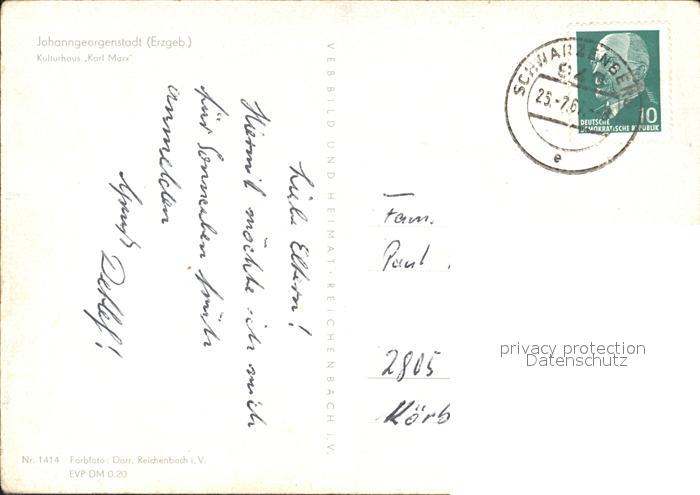 Johanngeorgenstadt (Erzgeb.)
Kulturhaus „Karl Marx"
Liebe Eltern!
Hiermit möchte ich mich
für Sonnabend früh
anmelden
Gruß
Detlef!
VEB BILD UND HEIMAT · REICHENBACH i. V.
SCHWARZENBERG
e
10
DEUTSCHE
DEMOKRATISCHE REPUBLIK
Fam.
Paul
2805
Körb
privacy protection
Datenschutz
Nr. 1414 Farbfoto: Darr, Reichenbach i. V.
EVP DM 0,20